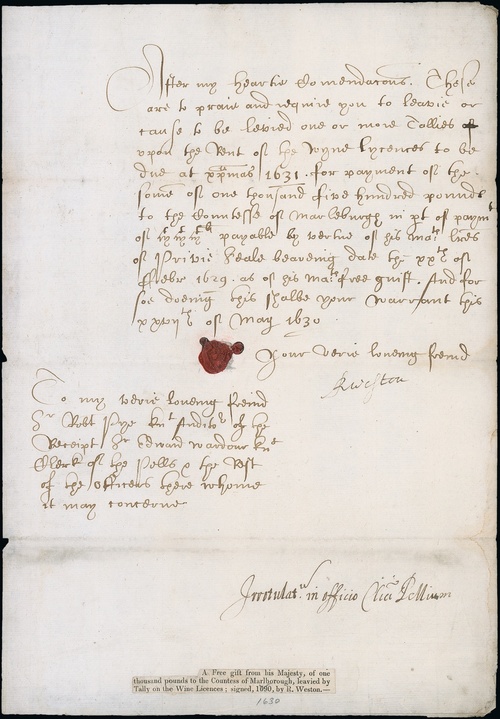 After my heartie Comendacons. These
are to praie and require you to leavie or
cause to be levied one or more Tallies
vpon the Rent of the Wyne Lycences to be
due at xpmas 1631. for payment of the
some of one thousand and five hundred pounds
to the Countesse of Marleburgh in pt of paymt
of payable by vertue of his Mats lres
of Privie Seale beareing date the xxth of
ffebr 1629. as of his Mats free guift. And for
soe doeing this shalbe your warrant this
xxviith of May 1630
Your verie loveing freind
RWeston
To my verie loveing freind
Sr Robt Pye knt Auditor of the
Receipt Sr Edward Wardour knt
Clerk of the Pells & the Rest
of the Officers there whome
it may concerne
Irrotulatr in officio Clici Pellium
A Free gift from his Majesty, of one
thousand pounds to the Countess of Marlborough, leavied by
Tally on the Wine Licences ; signed, 1690, by R. Weston.—
1630